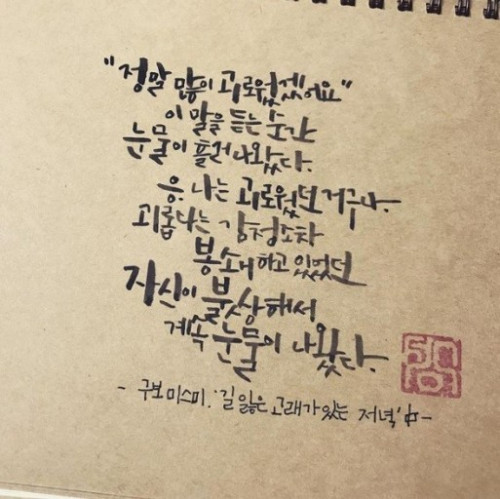 "정말 많이 괴로웠겠어요"
이 말을 듣는 순간
눈물이 흘러 나왔다.
응. 나는 괴로웠던 거구나.
괴롭다는 감정조차
봉쇄하고 있었던
자신이 불쌍해서
계속 눈물이 나왔다.
- 구보 미스미. '길 잃은 고래가 있는 저녁' 中 -